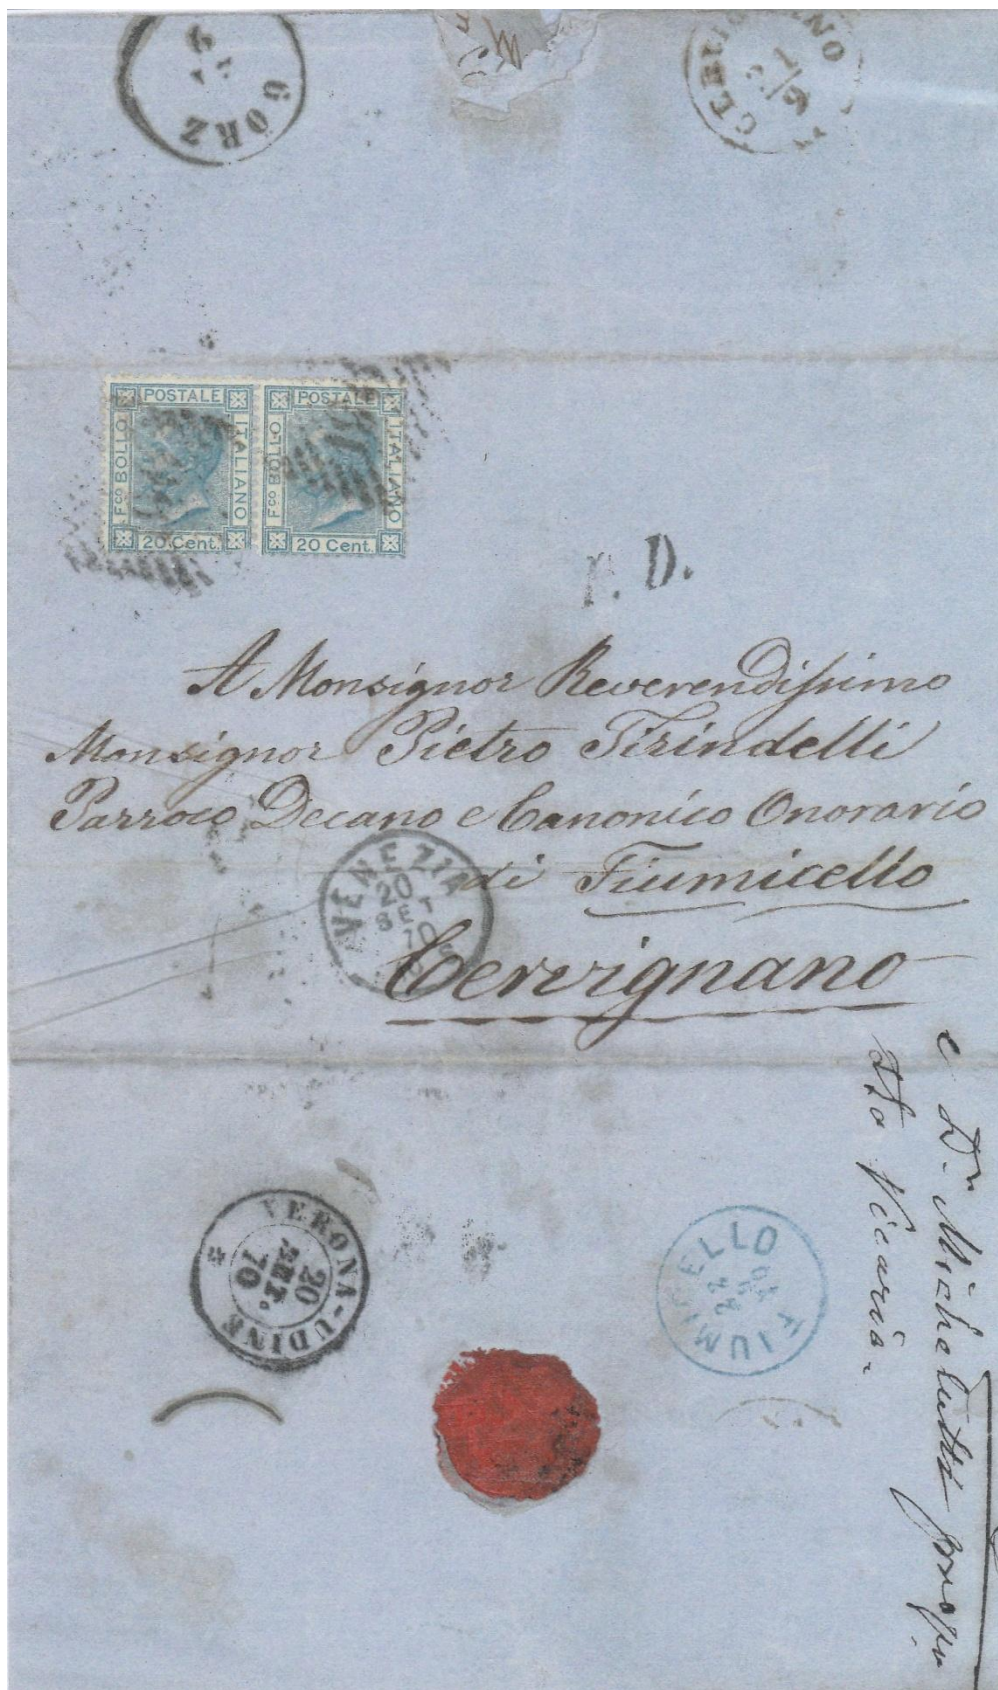 GÖRZ
POSTALE
F.co BOLLO
ITALIANO
20 Cent.
POSTALE
F.co BOLLO
ITALIANO
20 Cent.
P. D.
A Monsignor Reverendissimo
Monsignor Pietro Tirindelli
Parroco Decano e Canonico Onorario
di Fiumicello
Cervignano
VENEZIA
20
70
VERONA-UDINE
20
SET.
70
FIUMICELLO
e Dn Michelutti
Vicario